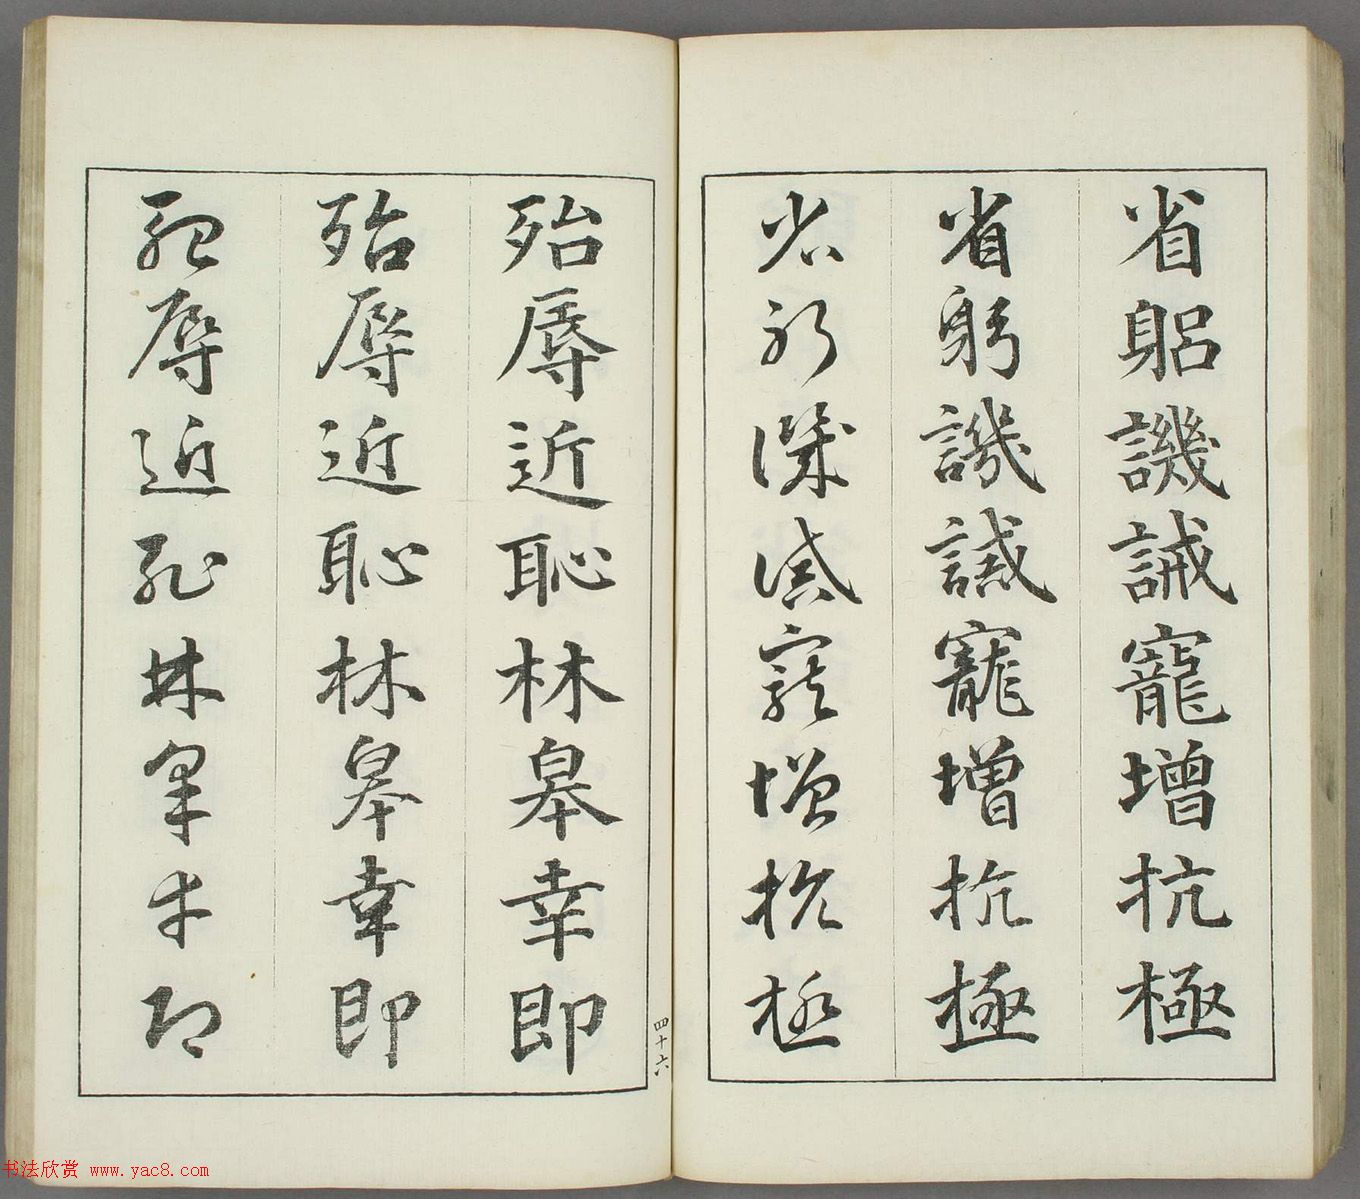 省躳譏誡寵增抗極
省躬譏誡寵增抗極
省躬譏誡寵增抗極
殆辱近恥林皋幸即
殆辱近恥林皋幸即
殆辱近恥林皋幸即
四十六
书法欣赏 www.yac8.com